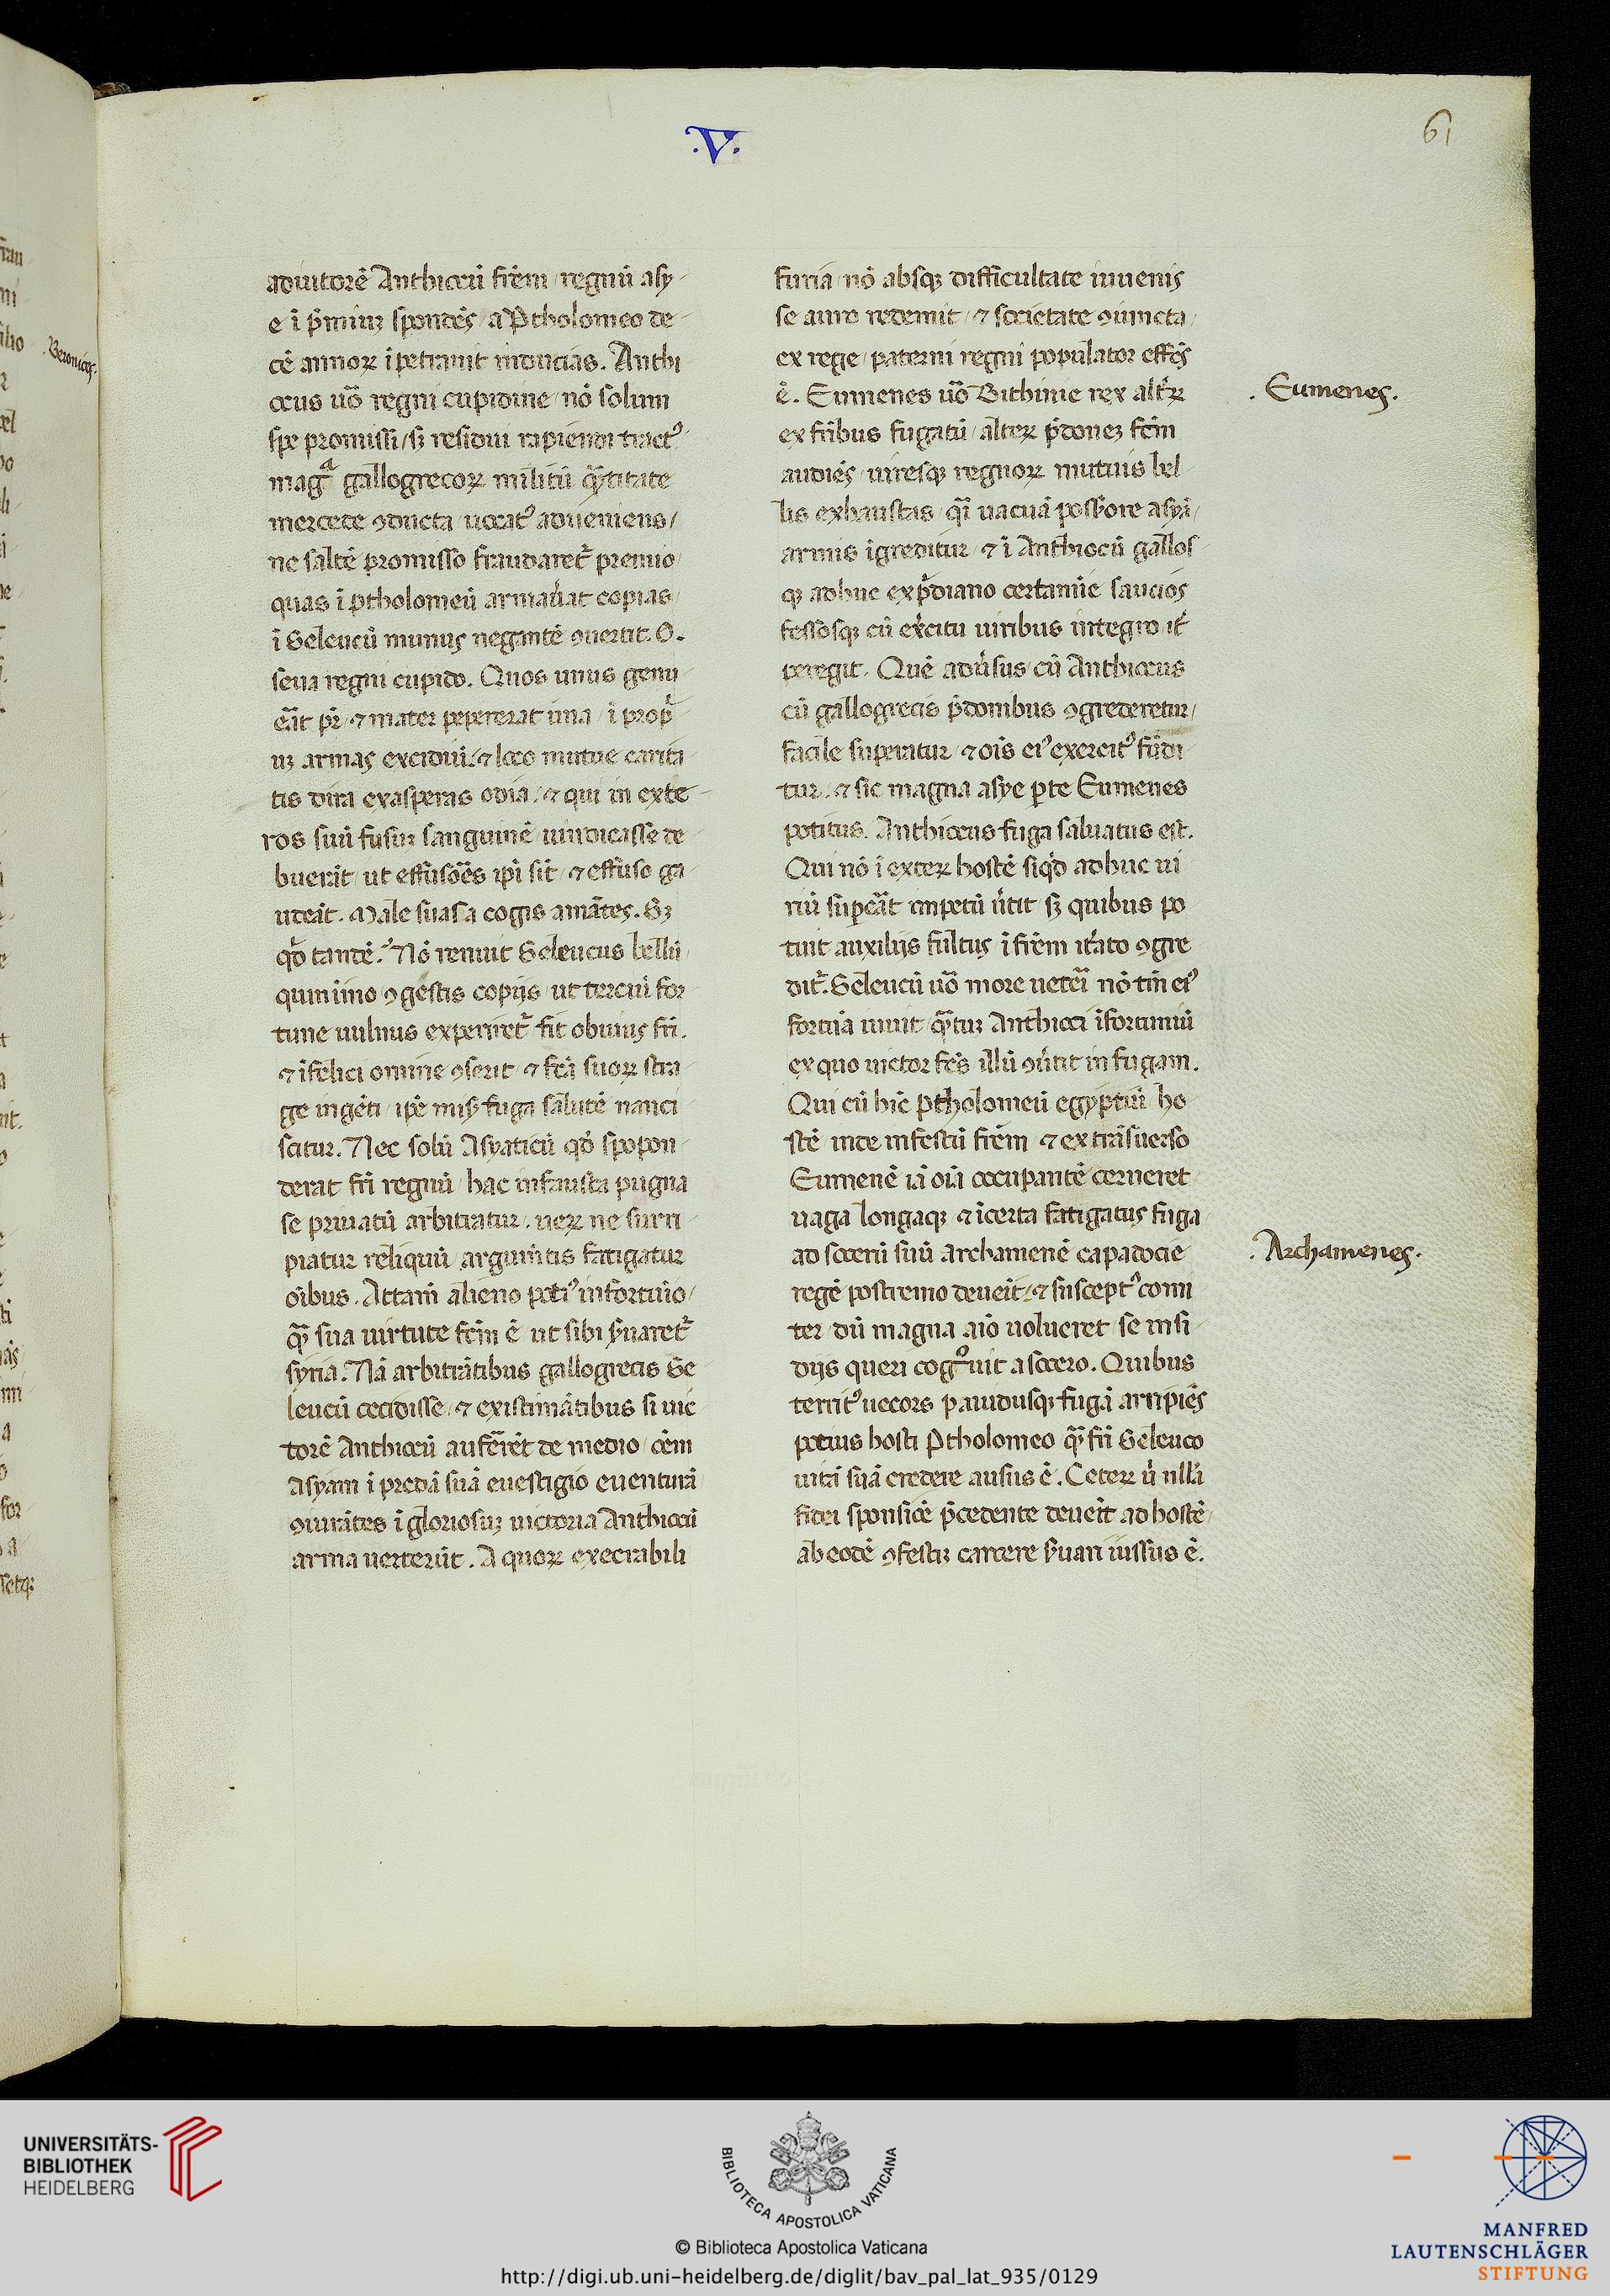 .V.
61
adiutorē Anthiocū frēm regnū asy
e ī p̄miuꝫ spondēs a Ptholomeo de
cē annoꝝ īpetrauit inducias. Anthi
ocus uō regni cupidine nō solum
spe promissi sꝫ residui rapiendi tractꝰ
magᵃ gallogrecoꝝ militū qᷓtitate
mercede ꝯducta uocatꝰ adueniens
ne saltē promisso fraudaret᷑ premio
quas ī ptholomeū armau̾at copias
ī Seleucū munus negantē ꝯuertit. O.
seua regni cupido. Quos unus genu
eāt pr̄ ⁊ mater pepererat una ī prop̄
uꝫ armas excidiuꝫ ⁊ loco mutue carita
tis dira exasperas odia ⁊ qui in exte
ros suū fusuꝫ sanguinē uindicasse de
buerāt ut effusōēs ip̄i sīt ⁊ effuso ga
udeāt. Male suasa cogis amātes. Sꝫ
qd̄ tandē. Nō renuit Seleucus bellū
quinimo ꝯgestis copijs ut terciū for
tune uulnus experiret᷑ fit obuius fr̄i.
⁊ īfelici omine ꝯserit ⁊ fc̄a suoꝝ stra
ge ingēti ip̄e mis̾ fuga salutē nanci
scitur. Nec solū Asyaticū qd̄ spopon
derat fr̄i regnū hac infausta pugna
se priuatū arbitratur. ueꝝ ne surri
piatur reliquū argum̄tis fatigatur
oībus. Attam̄ alieno potiꝰ infortuīo
qᷓ sua uirtute fc̄m ē ut sibi s̾uaret᷑
syria. Nā arbitrātibus gallogrecis Se
leucū cecidisse ⁊ existimātibus si uic
torē Anthiocū auferret de medio oēm
Asyam ī predā suā euestigio euenturā
ꝯiurātes ī gloriosuꝫ uictoria Anthiocū
arma uerterūt. A quoꝝ execrabili
furia nō absqꝫ difficultate iuuenis
se auro redemit ⁊ societate ꝯiuncta
ex rege paterni regni populator effc̄s
ē. Eumenes uō Bithinie rex alt̾ꝝ
ex fr̄ibus fugatū alteꝝ p̄doneꝫ fc̄m
audiēs uiresqꝫ regnoꝝ mutuis bel
lis exhaustas qᷓi uacuā possessore asyā
armis īgreditur ⁊ ī Anthiocū gallos
qꝫ adhuc ex p̄diano certamīe saucios
fessosqꝫ cū ex̾citu uiribus integro it̾
peregit. Quē adu̾sus cū Anthiocus
cū gallogrecis p̄donibus ꝯgrederetur
facile superatur ⁊ oīs eiꝰ exercitꝰ fūdi
tur ⁊ sic magna asye ꝑte Eumenes
potitus. Anthiocus fuga saluatus est.
Qui nō ī exteꝝ hostē siqd̄ adhuc ui
riū supeāt impetū u̾tit sꝫ quibus po
tuit auxilijs fultus ī frēm it̾ato ꝯgre
dit᷑. Seleucū uō more ueteri nō tm̄ eiꝰ
fortūa iuuit qᷓtuꝫ Anthioci īfortuniū
ex quo uictor fc̄s illū ꝯu̾tit in fugam.
Qui cū hīc ptholomeū egyptiū ho
stē inde infestū frēm ⁊ ex trāsuerso
Eumenē iā oīa occupantē cerneret
uaga longaqꝫ ⁊ īcerta fatigatus fuga
ad socerū suū archamenē capadocie
regē postremo deueīt ⁊ susceptꝰ comi
ter dū magna aīo uolueret se insi
dijs queri cogᵒuit a socero. Quibus
territꝰ uecors pauidusqꝫ fugā arripiēs
potius hosti Ptholomeo qᷓ fr̄i Seleuco
uitā suā credere ausus ē. Ceteꝝ u̾ nlla
fidei sponsiōe p̄cedente deueīt ad hostē
ab eodē ꝯfestiꝫ carcere s̾uari iussus ē.
. Eumenes.
. Archamenes.
. Beronices.
UNIVERSITÄTS-
BIBLIOTHEK
HEIDELBERG
BIBLIOTECA APOSTOLICA VATICANA
© Biblioteca Apostolica Vaticana
http://digi.ub.uni-heidelberg.de/diglit/bav_pal_lat_935/0129
MANFRED
LAUTENSCHLÄGER
STIFTUNG